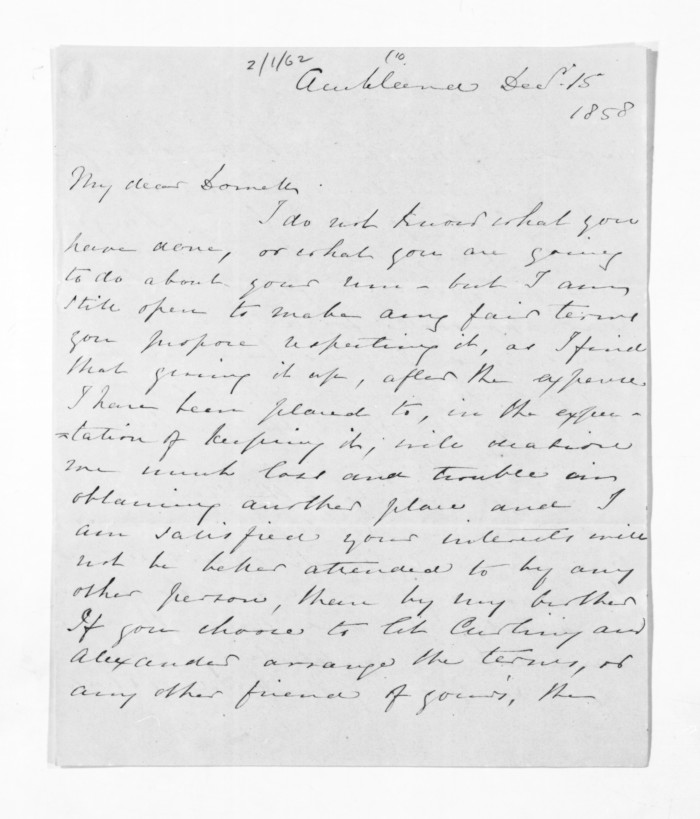 2/1/62 (10
Auckland Decr. 15
1858
My dear Domett
I do not know what you
have done, or what you are going
to do about your run - but I am
still open to make any fair terms
you propose respecting it, as I find
that giving it up, after the expense
I have been placed to, in the expec-
=tation of keeping it, will occasion
me much loss and trouble in
obtaining another place and I
am satisfied your interests will
not be better attended to by any
other person, than by my brother
If you choose to let Curling and
Alexander arrange the terms, or
any other friend of yours, the